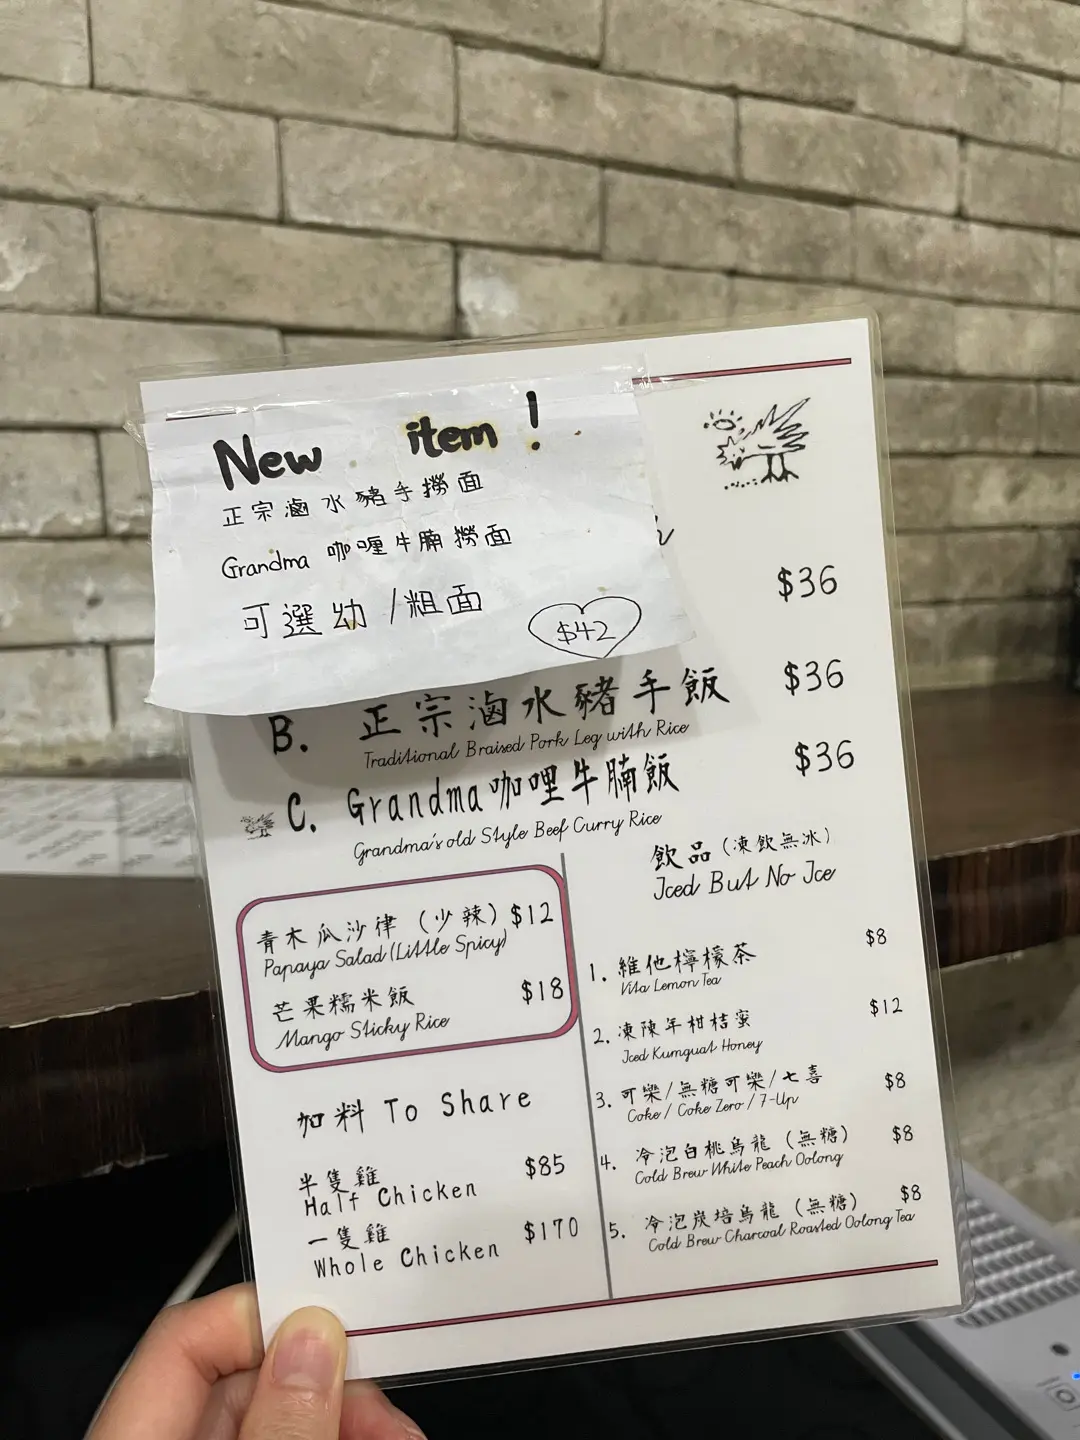 New item!
正宗滷水豬手撈面
Grandma 咖喱牛腩撈面
可選幼/粗面
$42
$36
B. 正宗滷水豬手飯 $36
Traditional Braised Pork Leg with Rice
C. Grandma咖哩牛腩飯 $36
Grandma's old Style Beef Curry Rice
青木瓜沙律（少辣）$12
Papaya Salad (Little Spicy)
芒果糯米飯 $18
Mango Sticky Rice
加料 To Share
半隻雞 $85
Half Chicken
一隻雞 $170
Whole Chicken
飲品（凍飲無冰）
Iced But No Ice
1. 維他檸檬茶 $8
Vita Lemon Tea
2. 凍陳年柑桔蜜 $12
Iced Kumquat Honey
3. 可樂/無糖可樂/七喜 $8
Coke / Coke Zero / 7-Up
4. 冷泡白桃烏龍（無糖） $8
Cold Brew White Peach Oolong
5. 冷泡炭培烏龍（無糖） $8
Cold Brew Charcoal Roasted Oolong Tea